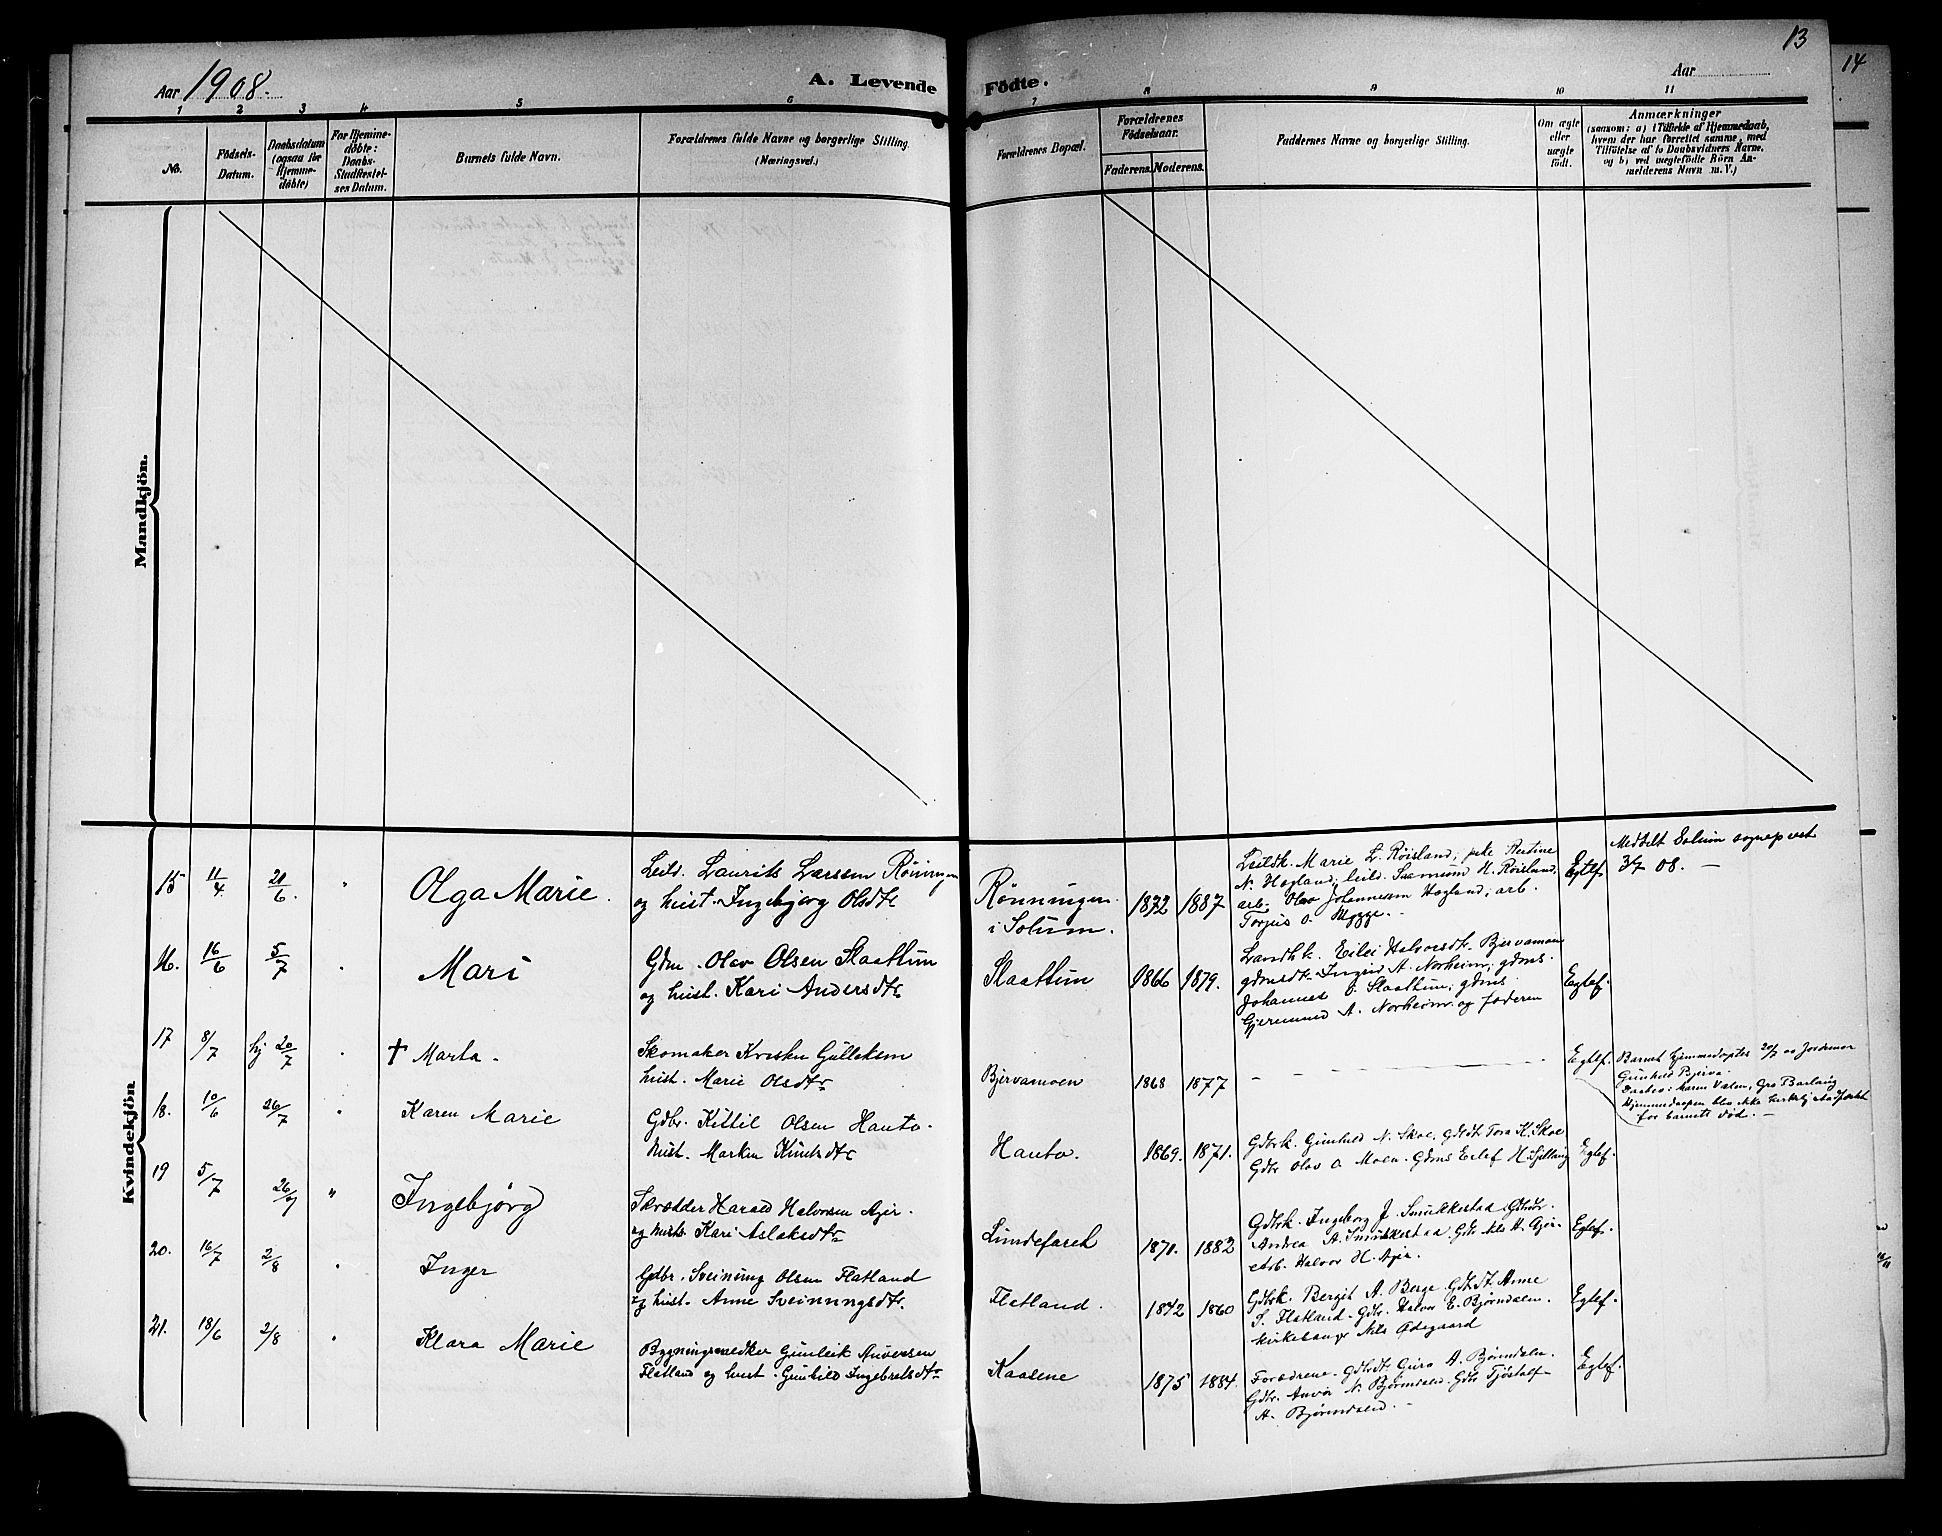 13
14
Aar 1908.
A. Levende Födte.
Aar
1 2 3 4 5 6 7 8 9 10 11
No.
Födsels-
Datum.
Daabsdatum
(ogsaa for
Hjemme-
döbte)
For Hjemme-
döbte:
Daabs-
Stadfæstel-
ses Datum.
Barnets fulde Navn.
Forældrenes fulde Navne og borgerlige Stilling
(Næringsvei.)
Forældrenes Bopæl.
Forældrenes
Födselsaar.
Faderens. Moderens.
Faddernes Navne og borgerlige Stilling.
Om ægte
eller
uægte
födt.
Anmærkninger
(saasom: a) i Tilfælde af Hjemmedaab,
hvem der har forrettet samme, med
Tilföielse af to Daabsvidners Navne.
og b) ved uægtefödte Börn An-
melderens Navn m. V.)
Mandkjön.
Kvindekjön
15 11/4 21/6. " Olga Marie.
Leil. Laurits Larssen Röningen
og hust. Ingebjörg Olsdtr
Rönningen
i Solum.
1872 1887
Leildk. Marie L. Röisland; pike Bertine
N. Hogland; leild. Samund H. Röisland,
arb. Olav Johannessen Hogland; arb.
Torjus O. Mygge.
Egtef.
Meddelt Solum sogneprest
08. —
16. 16/6 5/7 " Mari
Gdm. Olav Olsen Slaattun
og hust. Kari Andersdtr
Slaattun
1866 1879.
Landhk. Eilei Halvorsdtr. Bjervamoen
gdmsdtr. Ingeid A. Norheim; gdms.
Johannes O. Slaattun; gdms
Gjermund A. Norheim og faderen
Egtef.
17 8/7 hj 20/7 " † Marta.
Skomaker Kristen Gulleksen
hust. Marie Olsdtr
Bjervamoen
1868 1877
Egtef.
Barnet hjemmedöptes 20/7 av Jordmor
Gunhild Bjerva.
Maren Valen, Gro Barlaug
Hjemmedaapen blev ikke kirkelig stadfæstet
for barnets död. —
18. 10/6 26/7 " Karen Marie
Gdbr. Kittil Olsen Hauto.
hust. Marken Knutsdtr
Hauto.
1869. 1871.
Gdbrk. Gunhild N. Skoe, gdbdt. Tora K. Skoe
Gdbr Olav O. Moen. Gdms Eilef H.
Egtef.
19 5/7 26/7 " Ingebjörg
Skrædder Harald Halvorsen Ajer.
og hust. Kari Aslaksdtr
Lundefaret
1871. 1882
Gdbrk. Ingeborg J. Smukkestad Gdbdtr.
Andrea A. Smukkestad. Gdbr Nils H. Ajer.
Arb. Halvor H. Ajer.
Egtef.
20. 16/7 2/8 " Inger
Gdbr. Sveinung Olsen Flatland
og hust. Anne Sveinungsdtr.
Flatland.
1872 1860
Gdbrk. Bergit A. Berge. Gdbdt. Anne
S. Flatland. Gdbr. Halvor E. Björndalen.
kirkesanger Nils Ödegaard
Egtef.
21. 18/6 2/8 " Klara Marie
Bygningssnedker Gunleik Anversen
Flatland og hust. Gunhild Ingebretsdtr
Kaasene
1875 1884.
Foreldrene. Gdbdt. Guro A. Björndalen.
Gdbr. Anvor N. Björndalen. Gdbr Tjöstolf
A. Björndalen.
Egtef.